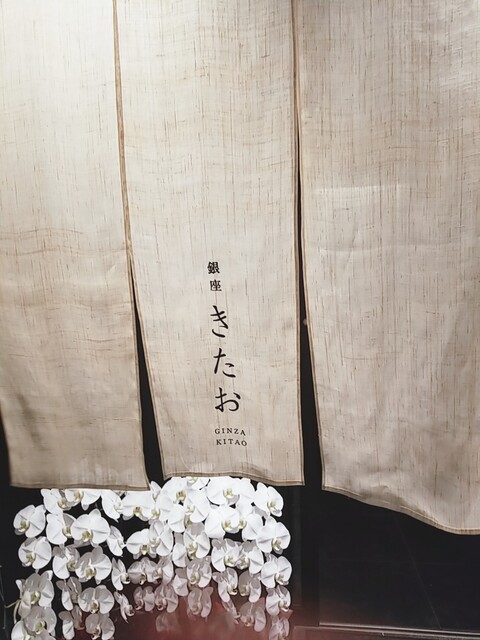 銀座
きたお
GINZA
KITAO